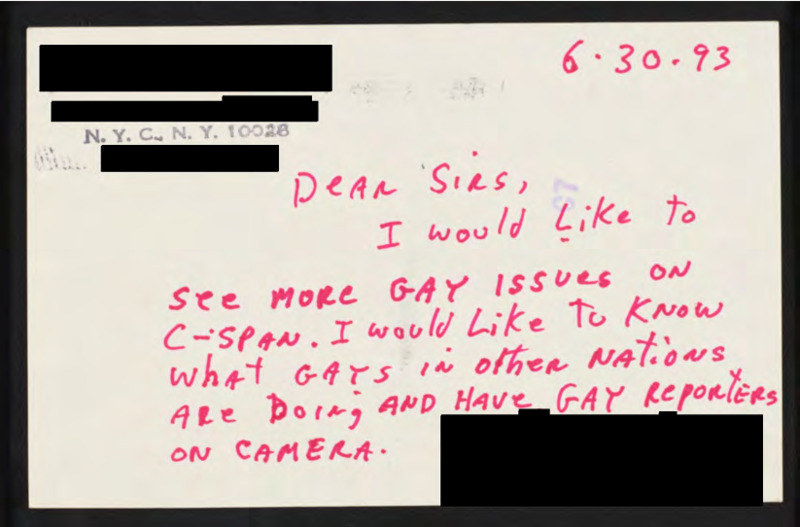 6·30·93
N. Y. C., N. Y. 10028
Dear Sirs,
I would Like to
see more GAY ISSUES ON
C-SPAN. I would Like to KNOW
what GAYS in other NATIONS
ARE Doing AND HAVE GAY REPORTERS
ON CAMERA.